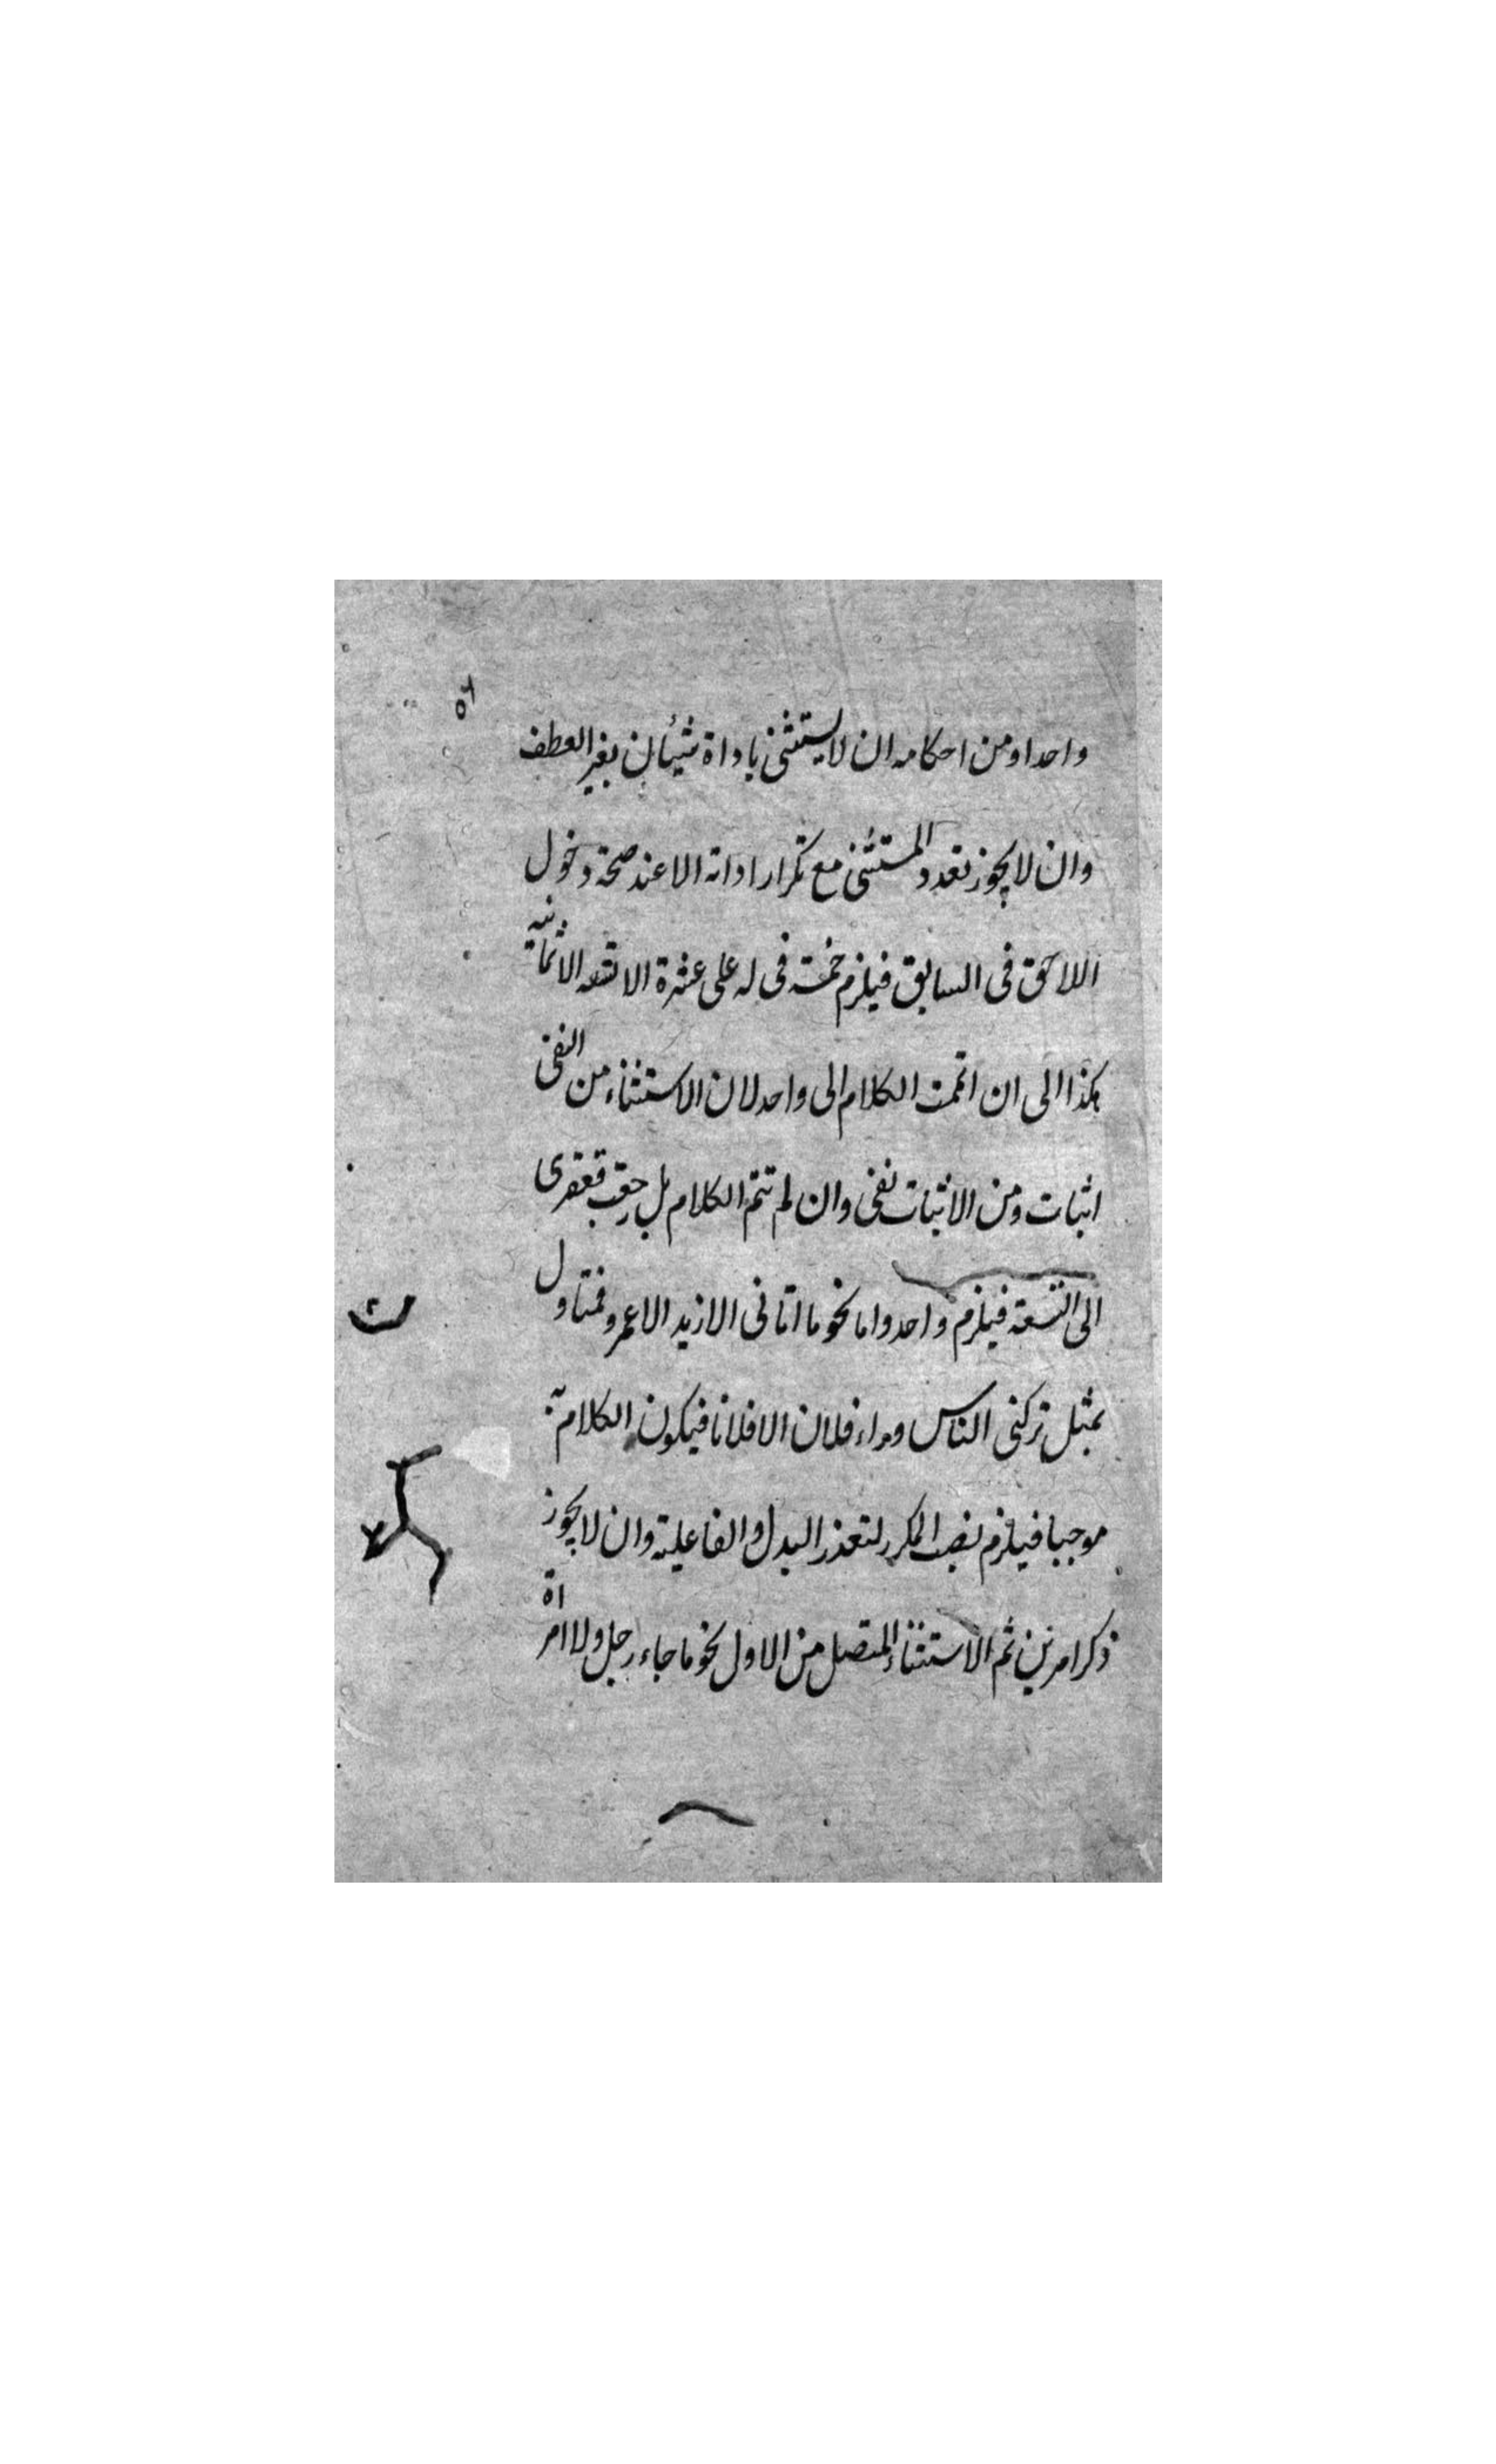 ٥٦
واحدا ومن احكامه ان لا يستثنى باداة شيئان بغير العطف
وان لا يجوز تعدد المستثنى مع تكرار اداته الا عند صحة دخول
اللاحق فى السابق فيلزم خمسة فى له على عشرة الا تسعه الا ثمانية
هكذا الى ان اتممت الكلام الى واحد لان الاستثناء من النفى
اثبات ومن الاثبات نفى وان لم تتم الكلام بل رجعت قهقرى
الى التسعة فيلزم واحد واما نحو ما اتانى الا زيد الا عمرو فمتاول
بمثل تركنى الناس وراء فلان الا فلانا فيكون الكلام به
موجبا فيلزم نصب المكرر لتعذر البدل والفاعلية وان لا يجوز
ذكر امرين ثم الاستثناء المتصل من الاول نحو ما جاء رجل ولا امراة